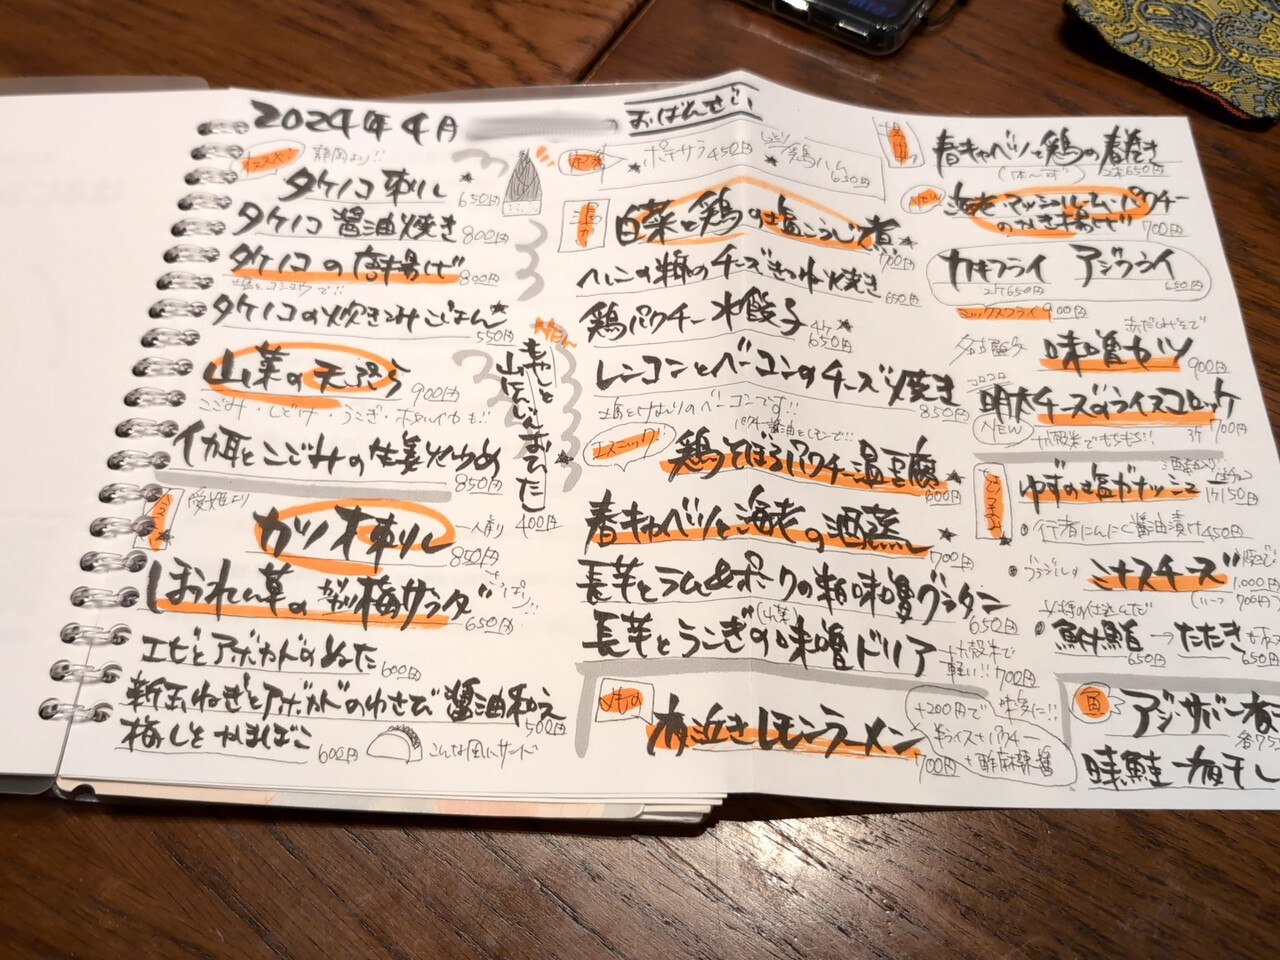 2024年4月
おばんせい
オススメ!
静岡より!!
タケノコ刺し 650円
タケノコ醤油焼き 800円
タケノコの唐揚げ 800円
タケノコの炊き込みごはん 550円
山菜の天ぷら 900円
こごみ・しどけ・うこぎ・ホタルイカも!!
イカ耳とこごみの生姜炒め 850円
愛媛より
カツオ刺し 850円
一人前
ほおれん草のガリ梅サラダ 650円
さっぱり!!
エビとアボカドのぬた 600円
新玉ねぎとアボカドのわさび醤油和え 500円
梅しそかまぼこ 600円
こんな風にサンド
New
山にんじんおひたし
400円
ポテサラ 450円
しっとり鶏ハム 650円
温か
白菜と鶏の塩こうじ煮 700円
チーズきつね焼き 650円
鶏パクチー水餃子 4ケ 650円
レンコンとベーコンのチーズ焼き 850円
のベーコンです!!
エスニック!!
パクチー醤油とレモンで!!
鶏そぼろパクチー温豆腐 600円
春キャベツと海老の酒蒸し 700円
長芋とラム&ポークの粗味噌グラタン 650円
(山菜)
長芋とうこぎの味噌ドリア 700円
十六穀米で軽い!!
〆もの
有近きレモンラーメン 700円
+200円で味変に!!
半ライス+パクチー
+酢麻辣醤
揚げ
春キャベツと鶏の春巻き 2本650円
New
海老マッシュルームパクチーのかき揚げ 700円
カキフライ 2ケ650円
アジフライ 650円
ミックスフライ 900円
名古屋名物
赤だしみそで
味噌カツ 900円
コロコロ
明太チーズのライスコロッケ 3ケ 700円
NEW
十六穀米でもちもち!!
ゆずの塩ガナッシュ 1ケ150円
・行者にんにく醤油漬け450円
・ブラジル
ミナスチーズ 1,000円
(ハーフ 700円)
女将の仕込んだ
・鮒鮨 650円 → たたき 650円
魚
アジ・サバ
味鮭 梅干し